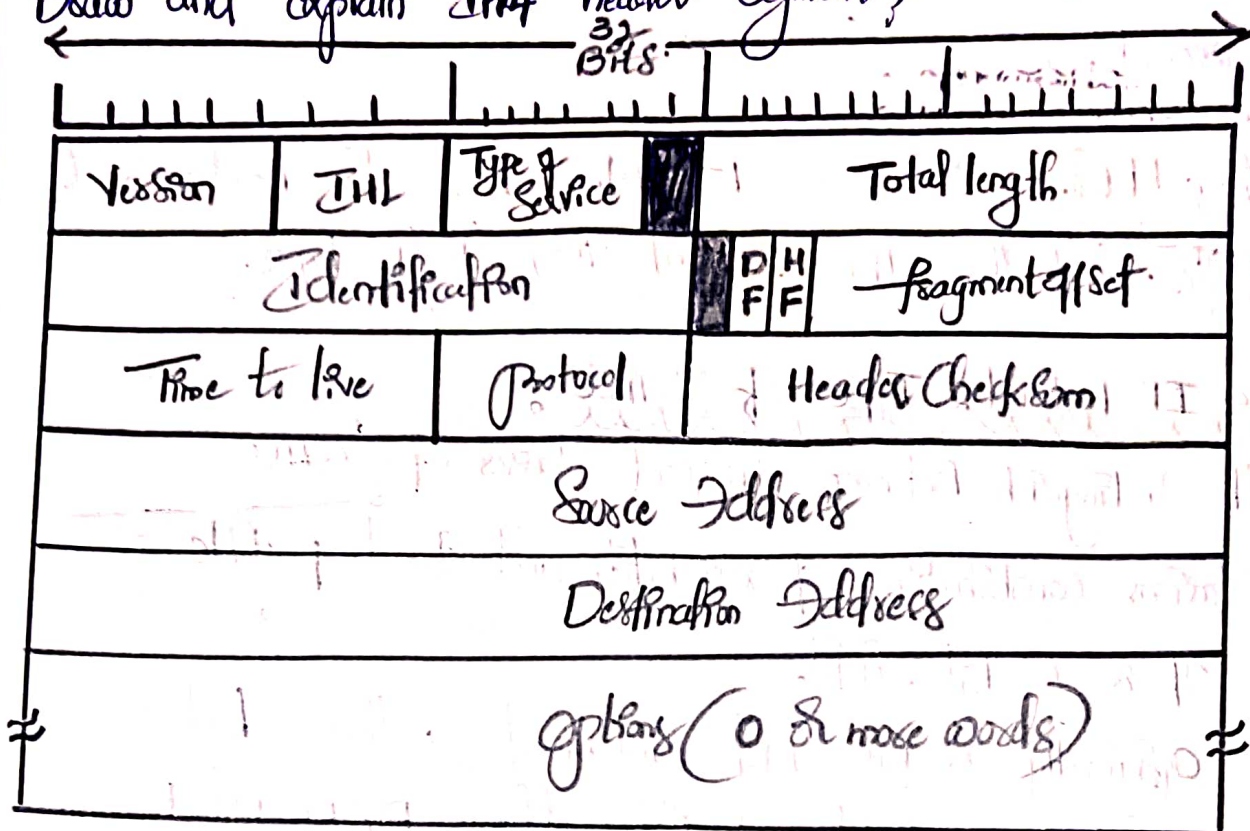 Draw and explain IPv4 header
32
BITS.
Version IHL Type of Service Total length.
Identification DF HF fragment offset.
Time to live protocol Header Checksum
Source Address
Destination Address
options (0 or more words)